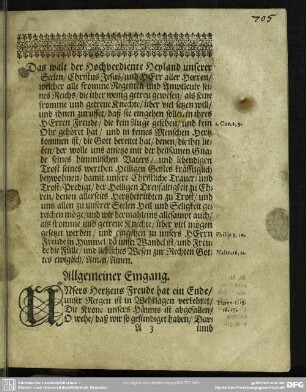 705
Das walt der Hochverdiente Heyland unserer
Seelen/ Christus Jesus/ und HErr aller Herren/
welcher alle fromme Regenten und Amptleute sei-
nes Reichs/ die über wenig getreu gewesen/ als seine
fromme und getreue Knechte/ über viel setzen will/
und ihnen zuruffet/ daß sie eingehen sollen in ihres
HErren Freude/ die kein Auge gesehen/ und kein
Ohr gehöret hat/ und in keines Menschen Hertz
kommen ist/ die Gott bereitet hat/ denen/ die ihn lie-
ben/ der wolle uns
seines himmlischen Vaters/ und lebendigen
Trost seines werthen Heiligen Geistes kräfftiglich
beywohnen/ damit unsere Christliche Trauer und
Trost-Predigt/ der Heiligen Dreyfaltigkeit zu Eh-
ren/ denen allerseits Hertzbetrübten zu Trost/ und
uns allen zu unserer Seelen Heil und Seligkeit ge-
reichen möge/ und wir dermahleins allesampt auch/
als fromme und getreue Knechte/ über viel mögen
gesetzet werden/ und eingehen zu unsers HErrn
Freude im Himmel/ da unser Wandel ist/ und Freu-
de die Fülle/ und liebliches Wesen zur Rechten Got-
tes ewiglich/ Amen/ Amen.
Allgemeiner Eingang.
UNsers Hertzens Freude hat ein Ende/
unser Reigen ist in Wehklagen verkehret/
Die Krone unsers Häupts ist abgefallen/
O wehe/ daß wir so gesündiget haben/ Dar-
A 3
umb